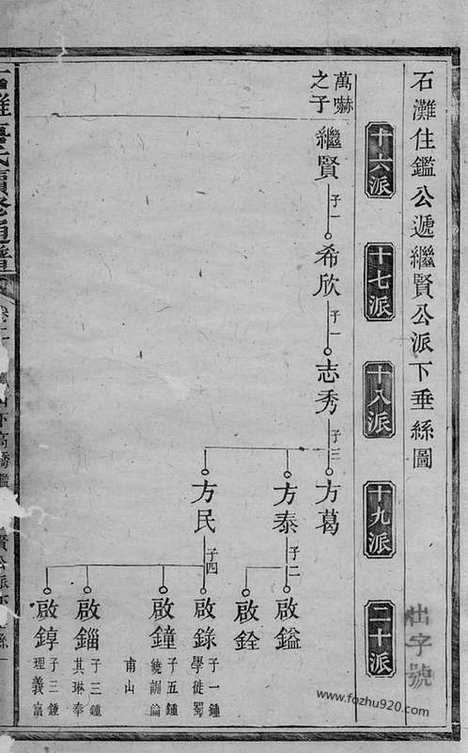 石灘住鑑公遞繼賢公派下垂絲圖
出字號
十六派
十七派
十八派
十九派
二十派
萬嚇
之子
繼賢
子一
希欣
子一
志秀
子三
方葛
方泰
子二
啟鎰
啟銓
方民
子四
啟錄
子一鍾
學徙蜀
啟鐘
子五鍾
繞訓論
南山
啟錙
子三鍾
其琳奉
啟錞
子三鍾
理義富
續修通譜
卷二
www.fozhu920.com